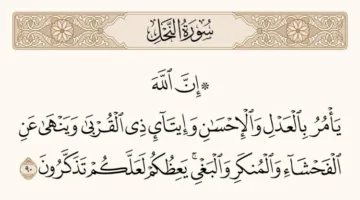 سُورَةُ النَّحْلِ
۞ إِنَّ ٱللَّهَ
يَأْمُرُ بِٱلْعَدْلِ وَٱلْإِحْسَٰنِ وَإِيتَآيِٕ ذِى ٱلْقُرْبَىٰ وَيَنْهَىٰ عَنِ
ٱلْفَحْشَآءِ وَٱلْمُنكَرِ وَٱلْبَغْىِۚ يَعِظُكُمْ لَعَلَّكُمْ تَذَكَّرُونَ ٩٠